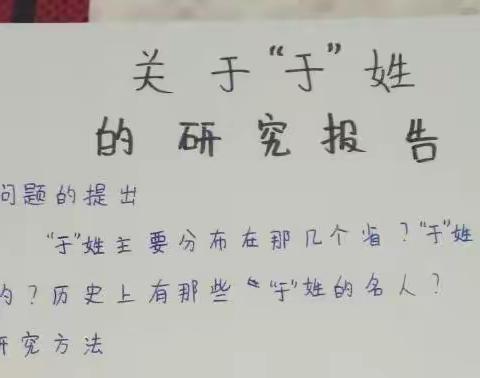 关于“于”姓
的研究报告
问题的提出
“于”姓主要分布在那几个省？“于”姓
的？历史上有那些“于”姓的名人？
研究方法